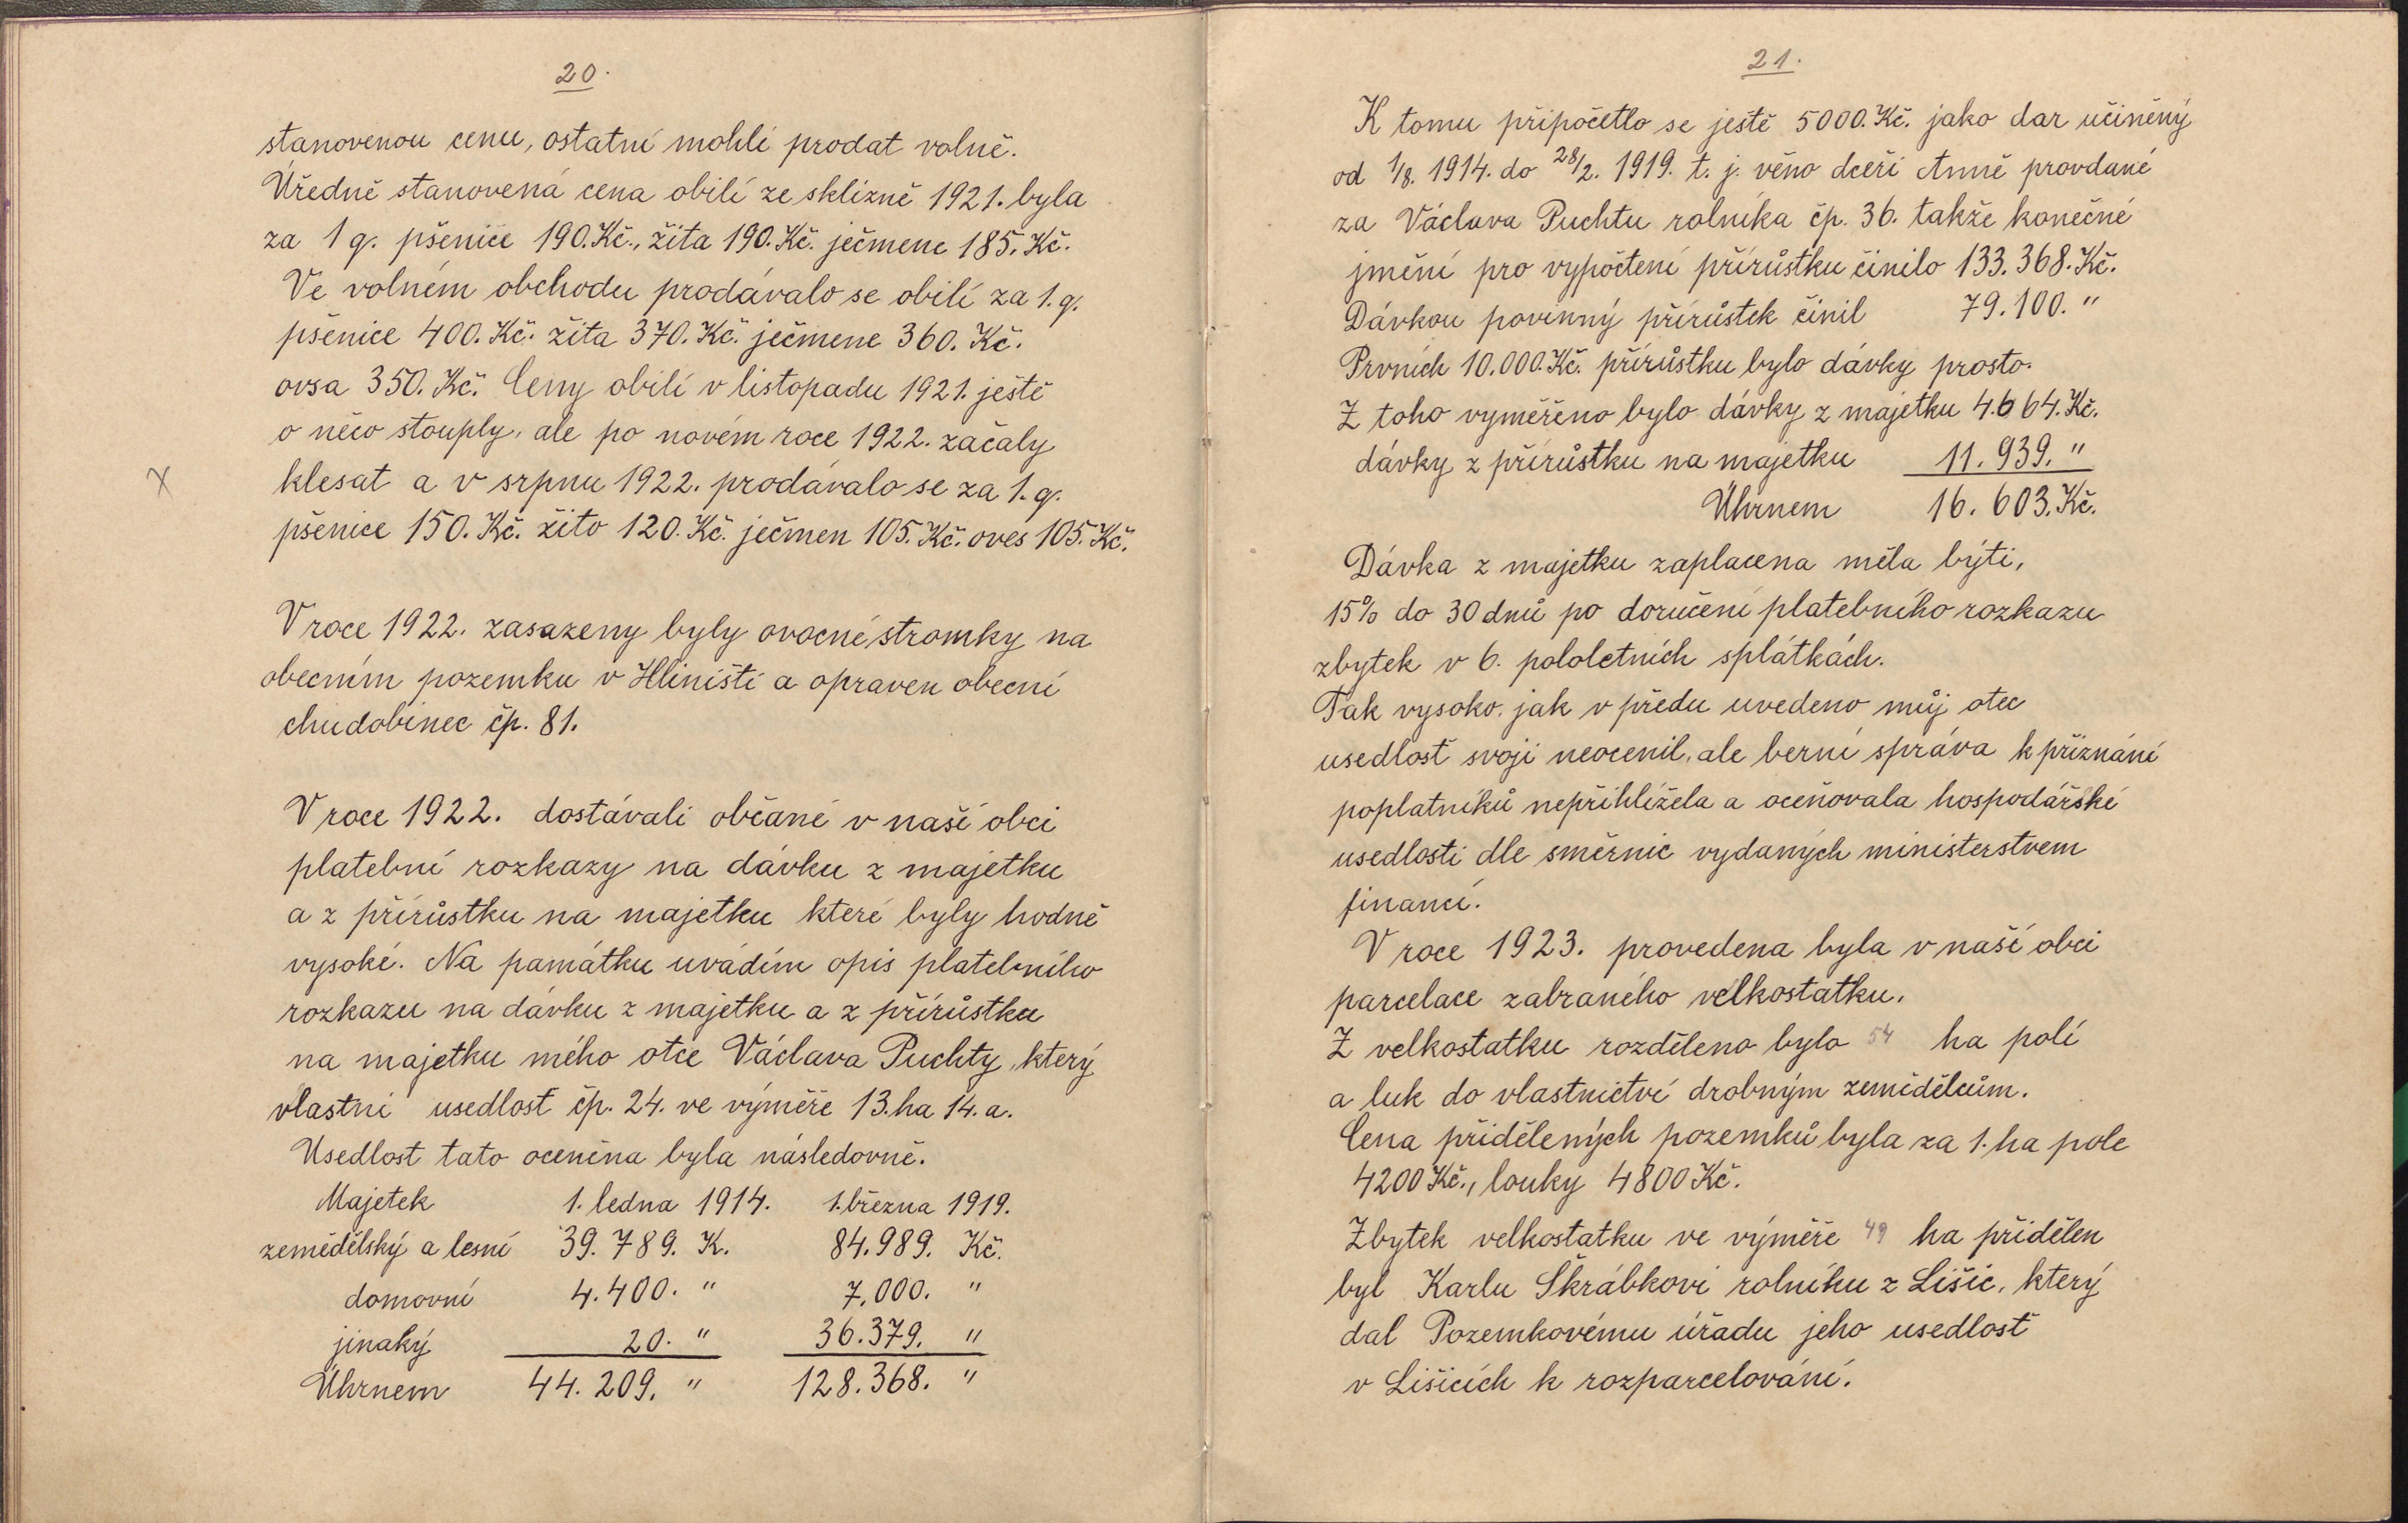 20.
stanovenou cenu, ostatní mohli prodat volně.
Úředně stanovená cena obilí ze sklizně 1921. byla
za 1 q. pšenice 190.Kč., žita 190.Kč. ječmene 185.Kč.
Ve volném obchodu prodávalo se obilí za 1. q.
pšenice 400. Kč. žita 370. Kč. ječmene 360. Kč.
ovsa 350. Kč. Ceny obilí v listopadu 1921. ještě
o něco stouply, ale po novém roce 1922. začaly
klesat a v srpnu 1922. prodávalo se za 1. q.
pšenice 150. Kč. žito 120. Kč. ječmen 105. Kč. oves 105. Kč.
V roce 1922. zasazeny byly ovocné stromky na
obecním pozemku v Hliništi a opraven obecní
chudobinec čp. 81.
V roce 1922. dostávali občané v naší obci
platební rozkazy na dávku z majetku
a z přírůstku na majetku které byly hodně
vysoké. Na památku uvádím opis platebního
rozkazu na dávku z majetku a z přírůstku
na majetku mého otce Václava Puchty, který
vlastní usedlost čp. 24. ve výměře 13. ha 14. a.
Usedlost tato oceněna byla následovně.
Majetek 1. ledna 1914. 1. března 1919.
zemědělský a lesní 39. 789. K. 84. 989. Kč.
domovní 4. 400. " 7. 000. "
jinaký 20. " 36. 379. "
Úhrnem 44. 209. " 128. 368. "
21.
K tomu připočetlo se ještě 5000. Kč. jako dar učiněný
od 1/8. 1914. do 28/2. 1919. t. j. věno dceři Anně provdané
za Václava Puchtu rolníka čp. 36. takže konečné
jmění pro vypočtení přírůstku činilo 133. 368. Kč.
Dávkou povinný přírůstek činil 79. 100. "
Prvních 10.000. Kč. přírůstku bylo dávky prosto.
Z toho vyměřeno bylo dávky z majetku 4. 664. Kč.
dávky z přírůstku na majetku 11. 939. "
Úhrnem 16. 603. Kč.
Dávka z majetku zaplacena měla býti,
15% do 30 dnů po doručení platebního rozkazu
zbytek v 6. pololetních splátkách.
Tak vysoko, jak v předu uvedeno můj otec
usedlosť svoji neocenil, ale berní správa k přiznání
poplatníků nepřihlížela a oceňovala hospodářské
usedlosti dle směrnic vydaných ministerstvem
financí.
V roce 1923. provedena byla v naší obci
parcelace zabraného velkostatku.
Z velkostatku rozděleno bylo 54 ha polí
a luk do vlastnictví drobným zemědělcům.
Cena přidělených pozemků byla za 1. ha pole
4200 Kč., louky 4800 Kč.
Zbytek velkostatku ve výměře 49 ha přidělen
byl Karlu Škrábkovi rolníku z Lišic, který
dal Pozemkovému úřadu jeho usedlosť
v Lišicích k rozparcelování.